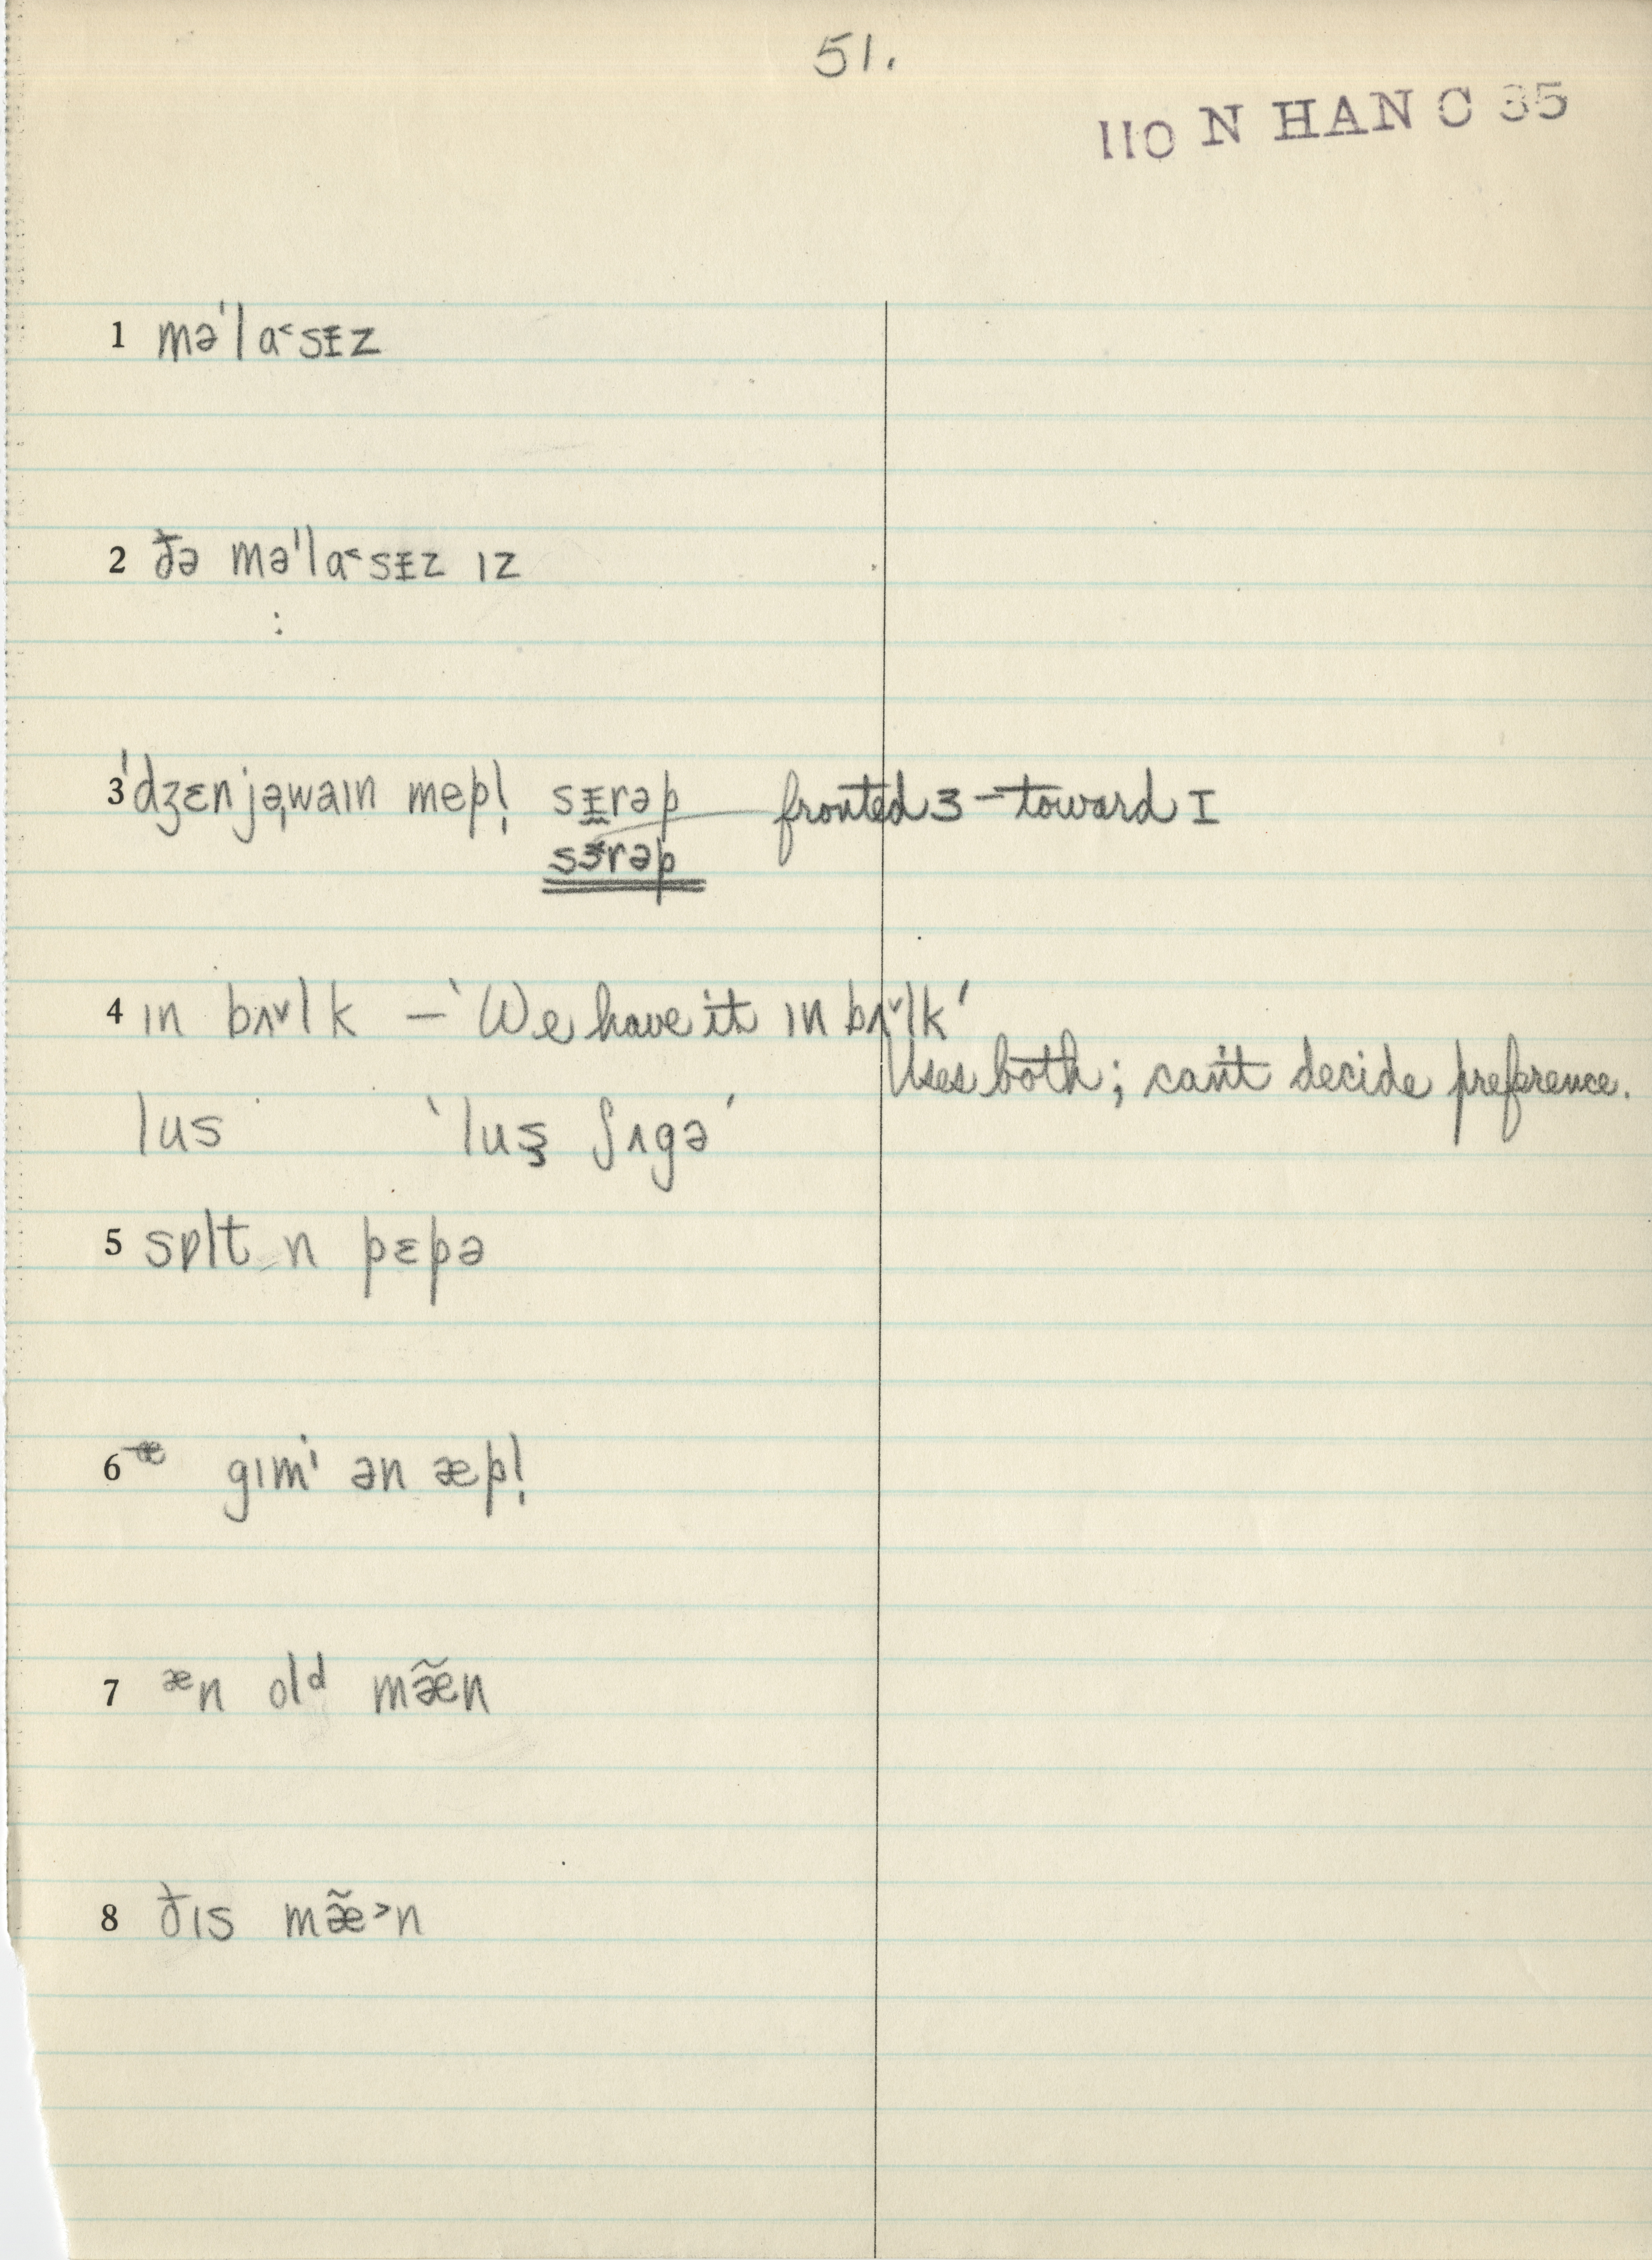 51.
110 N HAN C 35
1 mə'lɑ˂sɪ̵z
2 ðə mə'lɑ˂sɪ̵z ɪz
:
3 'dʒɛnjəˌwaɪn mepl̩ sɪ̵rəp fronted ɜ – toward I
sɜ˂rəp
4 ɪn bʌ˅lk – 'We have it ɪn bʌ˅lk'
Uses both; can't decide preference.
lus 'luʂ ʃʌgə'
5 sɒlt n pɛpə
6 æ gɪmɪ ən æpl̩
7 æn olᵈ mæ̃n
8 ðɪs mæ̃˃n